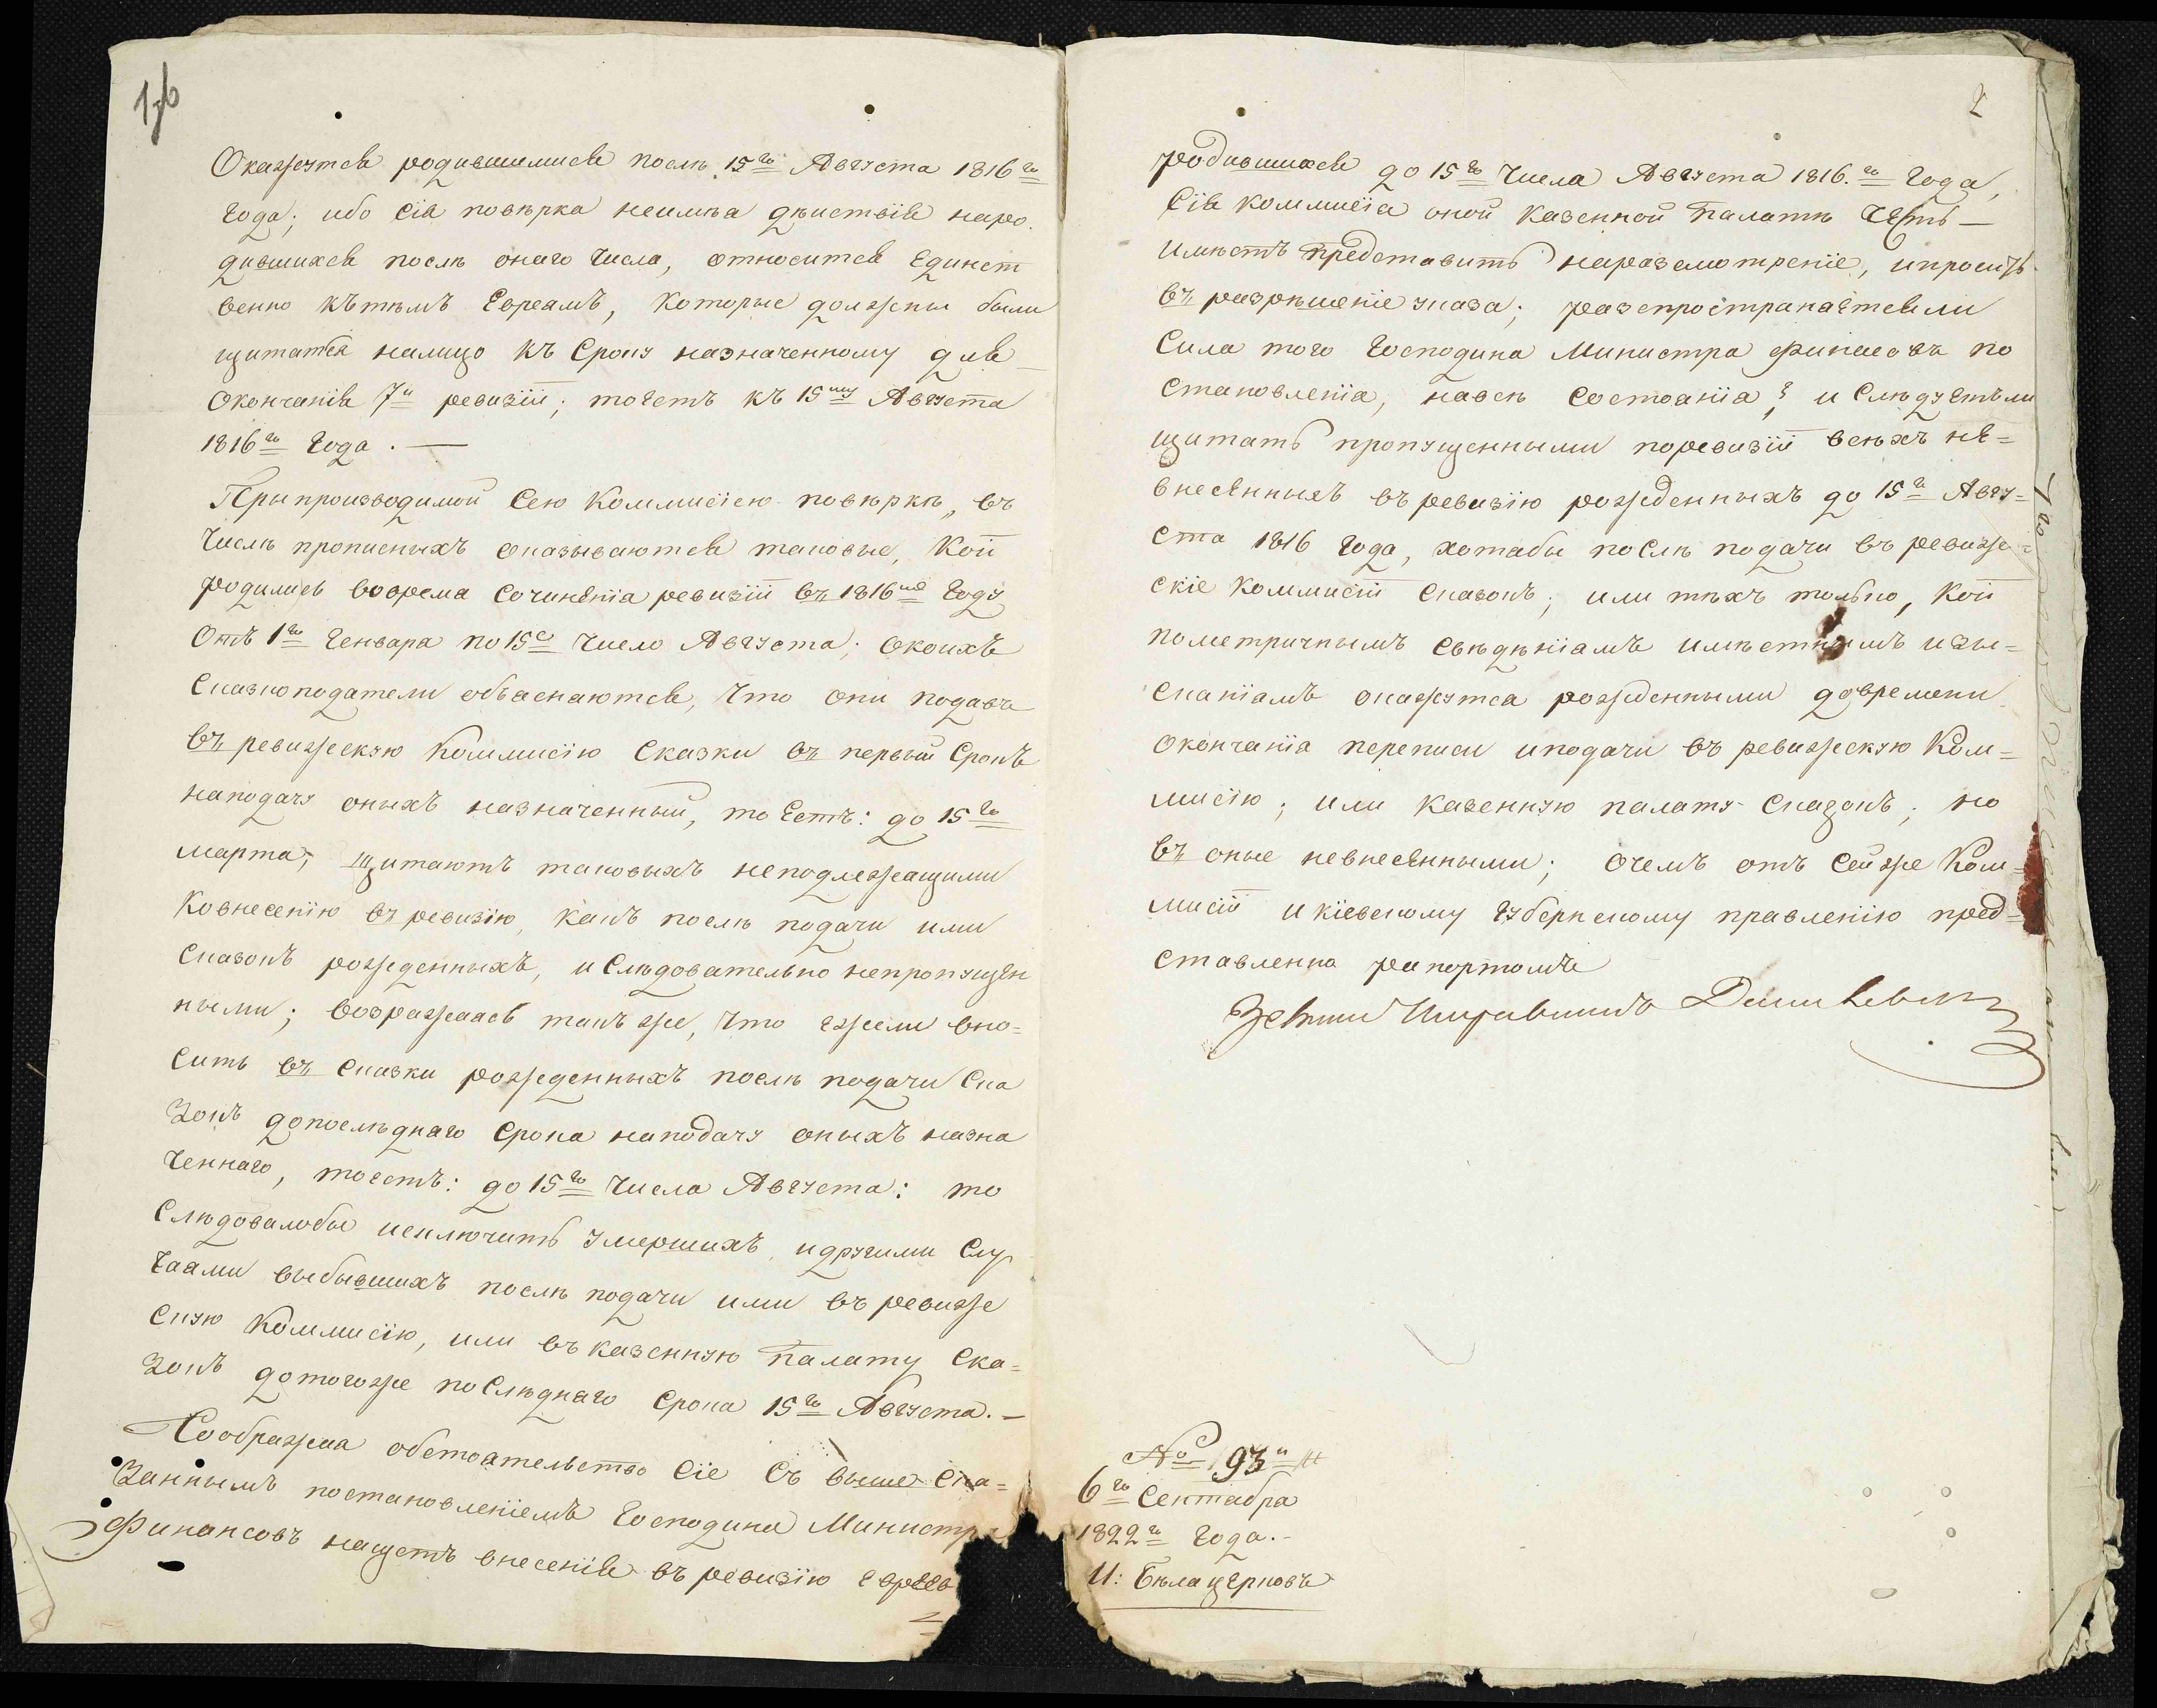 Окажутся родившимися послѣ 15го Августа 1816го
года; ибо сія повѣрка неимѣя дѣиствія наро
дившихся послѣ онаго числа, относится Единст
венно кътѣмъ Евреямъ, которые должны были
щитатся налицо къ Сроку назначенному для
Окончанія 7й ревизіи; тоесть къ 15му Августа
1816го года. —
При производимой Сею Коммисіею повѣркѣ, въ
Числѣ прописныхъ оказываются таковые, Кои
родились вовремя Сочиненія ревизіи въ 1816мъ Году
Отъ 1го Генваря по 15е число Августа; окоихъ
Сказкоподатели объясняются, что они подавъ
въ ревижскую Коммисію Сказки въ первый Срокъ
наподачу оныхъ назначенный, то Есть: до 15го
марта, щитаютъ таковыхъ неподлежащими
Ковнесенію въ ревизію, какъ послѣ подачи ими
Сказокъ рожденныхъ, и Слѣдовательно непропущен
ными; возражаясь такъ же, что ежели вно=
сить въ Сказки рожденныхъ послѣ подачи Ска
зокъ допослѣдняго Срока наподачу оныхъ назна
ченнаго, тоесть: до 15го Числа Августа: то
Слѣдовалобы исключить умершихъ, идругими Слу
чаями выбывшихъ послѣ подачи ими въ ревиже
скую Коммисію, или въ казенную палату Ска=
зокъ дотогоже послѣдняго Срока 15го Августа. —
Соображая обстоятельство Сіе Съ выше Ска=
заннымъ постановленіемъ Господина Министра
Финансовъ нащетъ внесенія въ ревизію евреевъ
2
родившихся до 15го Числа Августа 1816.го Года,
Сія коммисія оной Казенной Палатѣ Честь —
имѣетъ представить наразсмотреніе, ипросить
въ разрѣшеніе указа; разспространяетсяли
Сила того Господина Министра Финансовъ по
становленія, навсѣ Состоянія? и Слѣдуетъли
щитать пропущенными поревизіи всѣхъ не=
внесенныхъ въ ревизію рожденныхъ до 15го Авгу=
ста 1816 Года, хотябы послѣ подачи въ ревиже=
скіе Коммисіи Сказокъ; или тѣхъ только, Кои
пометричнымъ свѣдѣніямъ имѣстнымъ изы=
сканіямъ окажутся рожденными довремени
окончанія переписи иподачи въ ревижскую Ком=
мисію; или казенную палату Сказокъ; но
въ оные невнесенными; очемъ отъ Сей же Ком=
мисіи и кіевскому губернскому правленію пред=
ставленно рапортомъ
№ 93й
6го Сентября
1822го Года.
М: Бѣлацерковъ